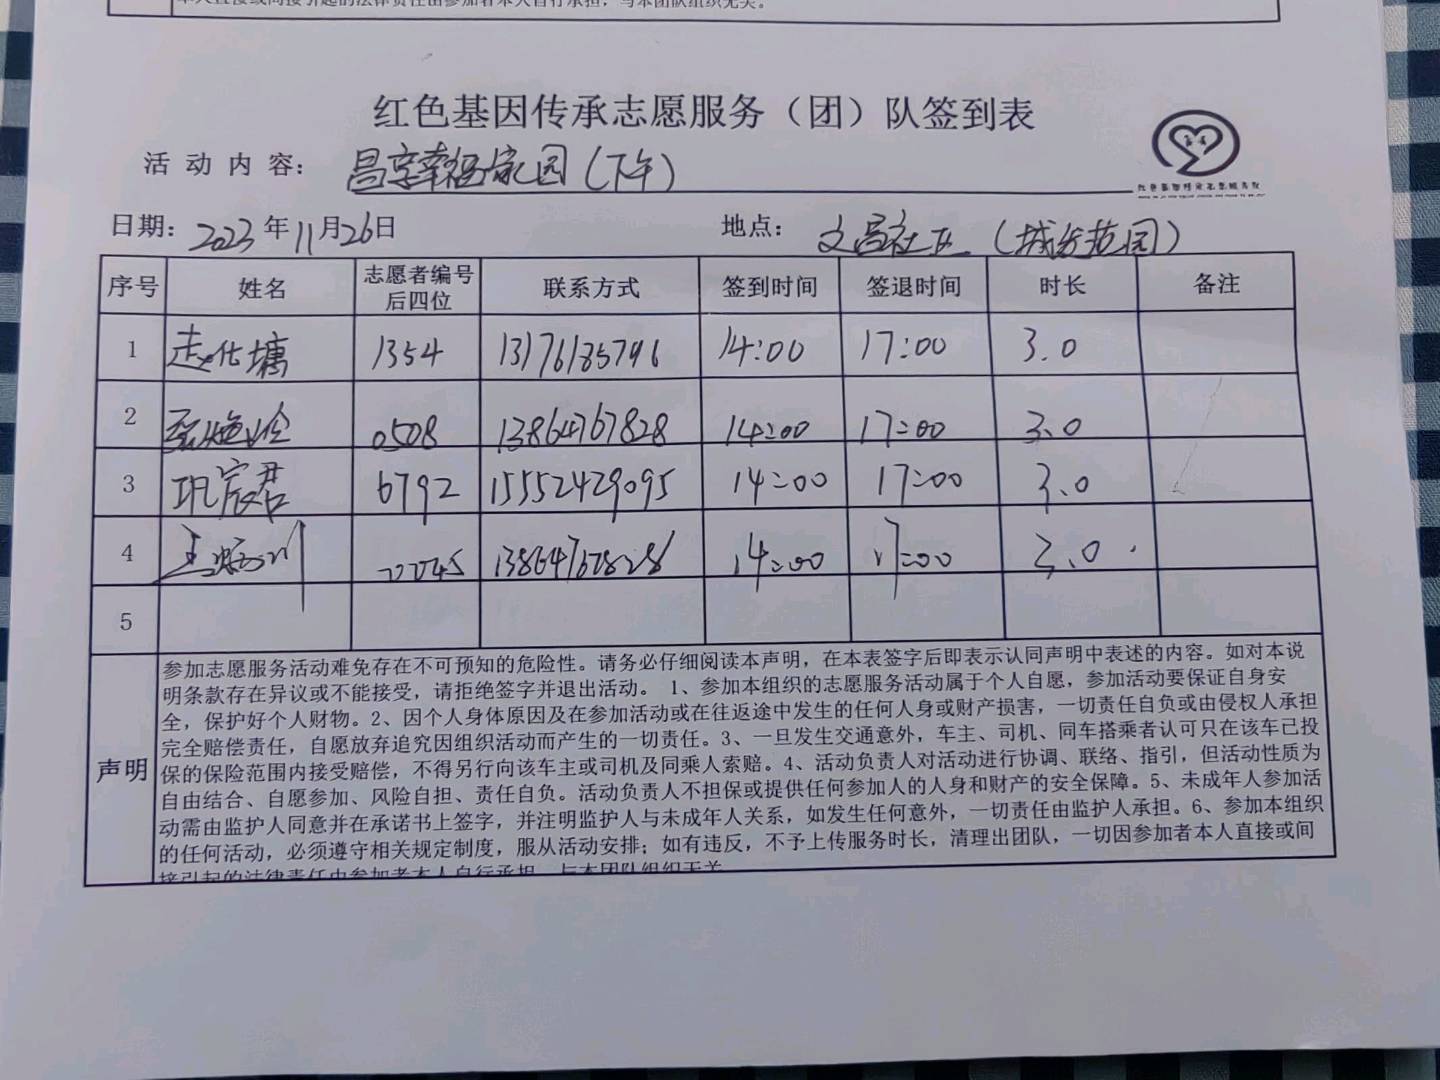 单人直接或间接引起的法律责任由参加者本人自行承担，与本团队组织无关。
红色基因传承志愿服务（团）队签到表
活动内容： 昌享幸福家园（下午）
日期：2023年11月26日 地点： 文昌社区（城发花园）
序号 姓名 志愿者编号后四位 联系方式 签到时间 签退时间 时长 备注
1 1354 13176185796 14:00 17:00 3.0
2 0508 13864767828 14:00 17:00 3.0
3 巩宸君 6792 15552429095 14:00 17:00 3.0
4 13864767828 14:00 17:00 3.0
5
声明
参加志愿服务活动难免存在不可预知的危险性。请务必仔细阅读本声明，在本表签字后即表示认同声明中表述的内容。如对本说
明条款存在异议或不能接受，请拒绝签字并退出活动。 1、参加本组织的志愿服务活动属于个人自愿，参加活动要保证自身安
全，保护好个人财物。2、因个人身体原因及在参加活动或在往返途中发生的任何人身或财产损害，一切责任自负或由侵权人承担
完全赔偿责任，自愿放弃追究因组织活动而产生的一切责任。3、一旦发生交通意外，车主、司机、同车搭乘者认可只在该车已投
保的保险范围内接受赔偿，不得另行向该车主或司机及同乘人索赔。4、活动负责人对活动进行协调、联络、指引，但活动性质为
自由结合、自愿参加、风险自担、责任自负。活动负责人不担保或提供任何参加人的人身和财产的安全保障。5、未成年人参加活
动需由监护人同意并在承诺书上签字，并注明监护人与未成年人关系，如发生任何意外，一切责任由监护人承担。6、参加本组织
的任何活动，必须遵守相关规定制度，服从活动安排；如有违反，不予上传服务时长，清理出团队，一切因参加者本人直接或间
接引起的法律责任由参加者本人自行承担，与本团队组织无关